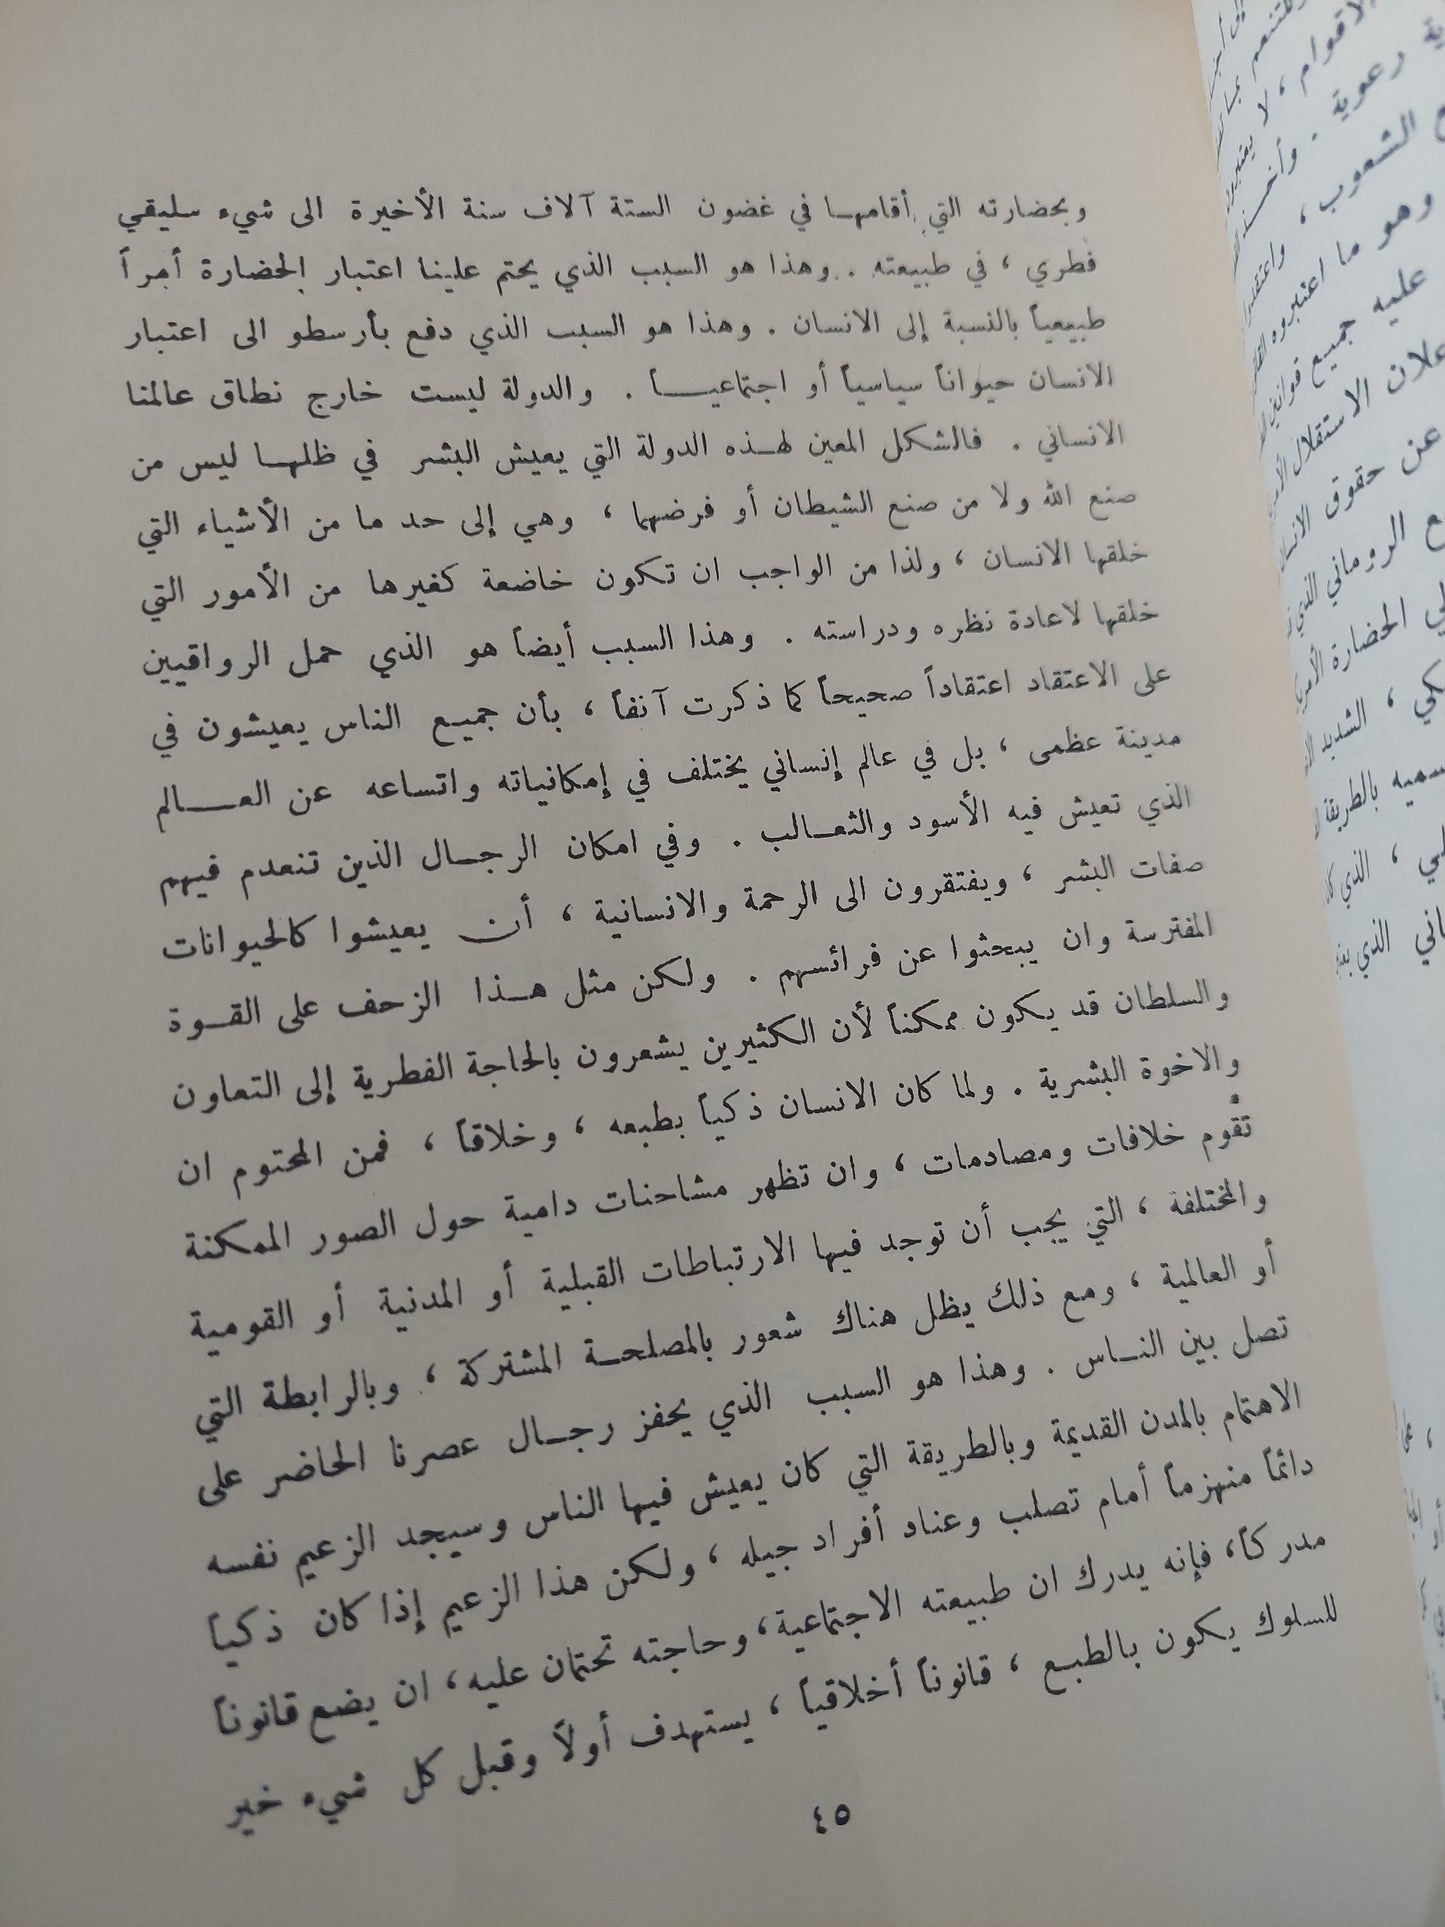 وبحضارته التي أقامهـا في غضون الستة آلاف سنة الأخيرة الى شيء سليقي
فطري ، في طبيعته . وهذا هو السبب الذي يحتم علينا اعتبار الحضارة أمراً
طبيعياً بالنسبة إلى الانسان . وهذا هو السبب الذي دفع بأرسطو الى اعتبار
الانسان حيواناً سياسياً أو اجتماعيـــاً . والدولة ليست خارج نطاق عالمنا
الانساني . فالشكل المعين لهـذه الدولة التي يعيش البشر في ظلهـا ليس من
صنع الله ولا من صنع الشيطان أو فرضهما ، وهي إلى حد ما من الأشياء التي
خلقها الانسان ، ولذا من الواجب ان تكون خاضعة كغيرها من الأمور التي
خلقها لاعادة نظره ودراسته . وهذا السبب أيضاً هو الذي حمل الرواقيين
على الاعتقاد اعتقاداً صحيحاً كما ذكرت آنفاً ، بأن جميع الناس يعيشون في
مدينة عظمى ، بل في عالم إنساني يختلف في إمكانياته واتساعه عن العـــالم
الذي تعيش فيه الأسود والثعـالب . وفي امكان الرجـال الذين تنعدم فيهم
صفات البشر ، ويفتقرون الى الرحمة والانسانية ، أن يعيشوا كالحيوانات
المفترسة وان يبحثوا عن فرائسهم . ولكن مثل هـذا الزحف على القـوة
والسلطان قد يكون ممكناً لأن الكثيرين يشعرون بالحاجة الفطرية إلى التعاون
والاخوة البشرية . ولما كان الانسان ذكياً بطبعه ، وخلاقاً ، فمن المحتوم ان
تقوم خلافات ومصادمات ، وان تظهر مشاحنات دامية حول الصور الممكنة
والمختلفة ، التي يجب أن توجد فيها الارتباطات القبلية أو المدنية أو القومية
أو العالمية ، ومع ذلك يظل هناك شعور بالمصلحـة المشتركة ، وبالرابطة التي
تصل بين النـاس . وهذا هو السبب الذي يحفز رجـال عصرنا الحاضر على
الاهتمام بالمدن القديمة وبالطريقة التي كان يعيش فيها الناس وسيجد الزعيم نفسه
دائماً منهزماً أمام تصلب وعناد أفراد جيله ، ولكن هذا الزعيم إذا كان ذكياً
مدركاً، فإنه يدرك ان طبيعته الاجتماعية، وحاجته تحتمان عليه، ان يضع قانوناً
للسلوك يكون بالطبـع ، قانوناً أخلاقياً ، يستهدف أولاً وقبل كل شيء خير
٤٥
الأقوام ، لا
رعوية . وأخـذ
الشعوب ، واعتقدوا
وهو ما اعتبروه
عليه جميع قوانين
الاستقلال
عن حقوق الانسان
الروماني الذي
الحضارة
الشديد
بالطريقة
الذي
الذي